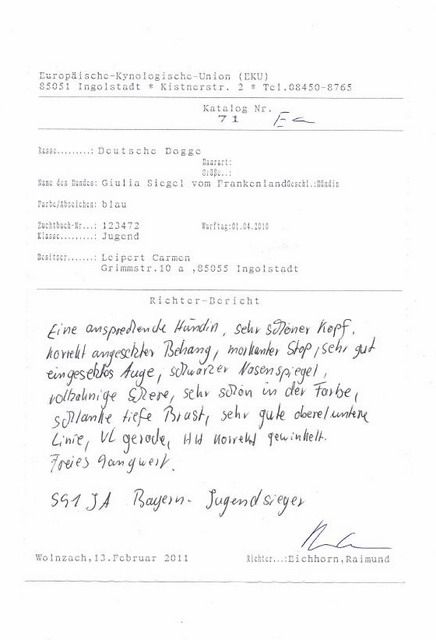 Europäische-Kynologische-Union (EKU)
85051 Ingolstadt * Kistnerstr. 2 * Tel.08450-8765
Katalog Nr.
71
Rasse.........: Deutsche Dogge
Haarart:
Größe..:
Name des Hundes: Giulia Siegel vom Frankenland Geschl.:Hündin
Farbe/Abzeichen: blau
Zuchtbuch-Nr...: 123472 Wurftag:01.04.2010
Klasse.........: Jugend
Besitzer.......: Leipert Carmen
Grimmstr.10 a ,85055 Ingolstadt
Richter-Bericht
Eine ansprechende Hündin, sehr schöner Kopf,
korrekt angesetzter Behang, markanter Stop, sehr gut
eingesetztes Auge, schwarzer Nasenspiegel,
vollzahnige Schere, sehr schön in der Farbe,
schlanke tiefe Brust, sehr gute obere/untere
Linie, VL gerade, HH korrekt gewinkelt.
Freies Gangwerk.
SG1 JA Bayern-Jugendsieger
Wolnzach,13.Februar 2011 Richter..:Eichhorn,Raimund